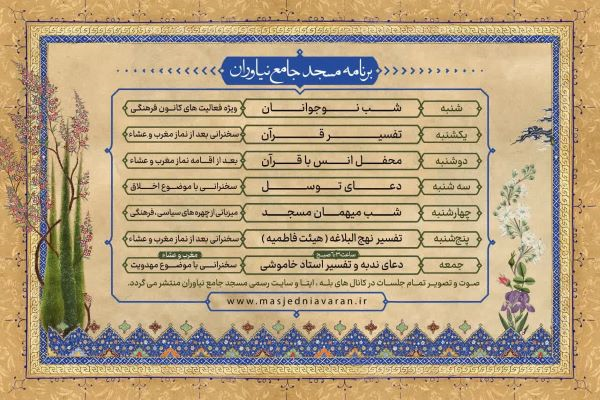 برنامه مسجد جامع نیاوران
شنبه شب نوجوانان ویژه فعالیت های کانون فرهنگی
یکشنبه تفسیر قرآن سخنرانی بعد از نماز مغرب و عشاء
دوشنبه محفل انس با قرآن بعد از اقامه نماز مغرب و عشاء
سه شنبه دعای توسل سخنرانی با موضوع اخلاق
چهارشنبه شب میهمان مسجد میزبانی از چهره های سیاسی، فرهنگی
پنج‌شنبه تفسیر نهج البلاغه (هیئت فاطمیه) سخنرانی بعد از نماز مغرب و عشاء
مغرب و عشاء
جمعه دعای ندبه و تفسیر استاد خاموشی سخنرانی با موضوع مهدویت
صوت و تصویر تمام جلسات در کانال های بله ، ایتا و سایت رسمی مسجد جامع نیاوران منتشر می گردد.
www.masjedniavaran.ir